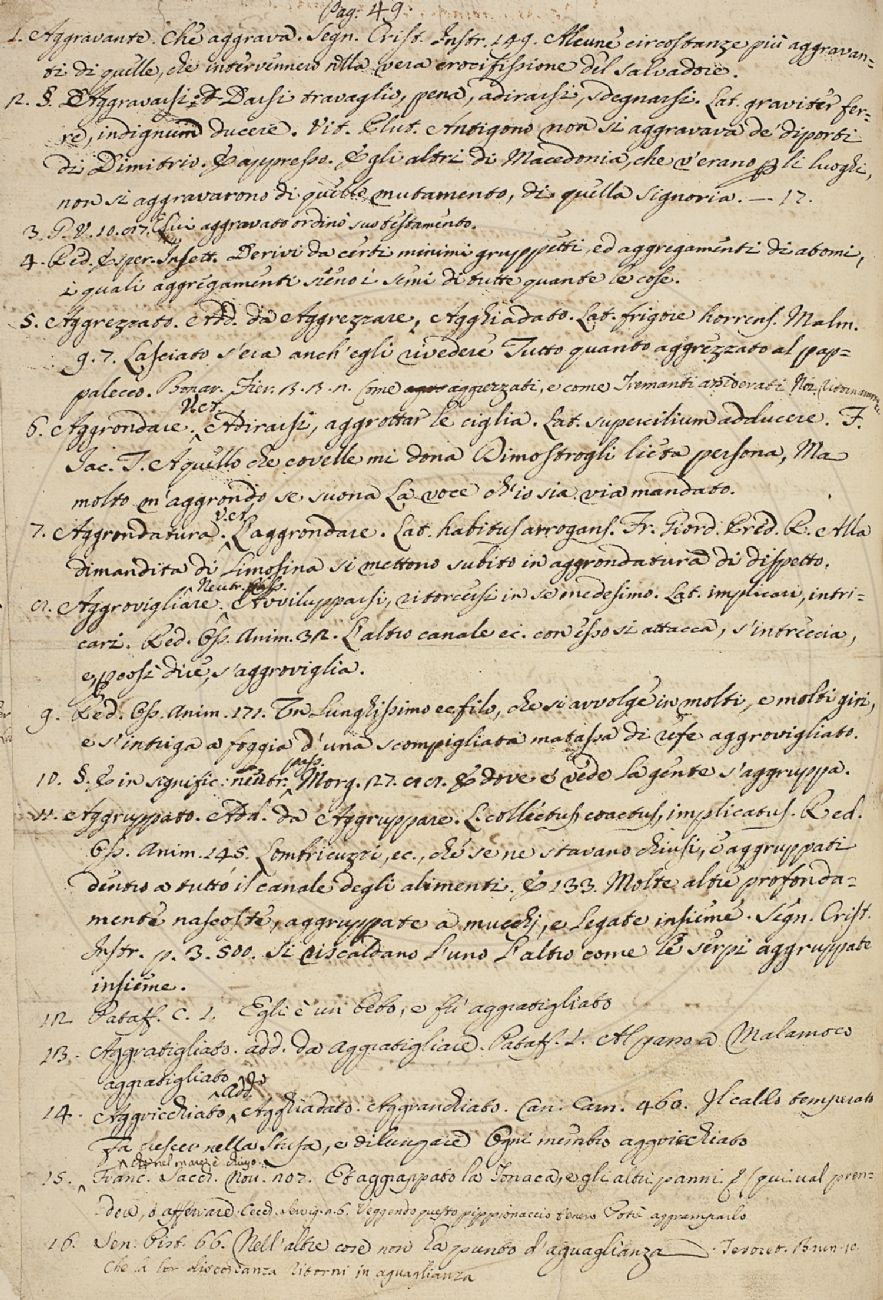 Pag. 49.
1. Aggravante. Che aggrava. Segn. Crist. Instr. 149. Alcune circostanze più aggravan=
ti di quelle, che intervennero nella vera crocifissione del Salvadore.
2. §. Aggravarsi Darsi travaglio, pena, adirarsi, sdegnarsi. Lat. graviter fer=
re, indignum ducere. Vit. Plut. Antigono non si aggravava de' diporti
di Dimitrio. E appresso. E gli altri di Macedonia, che v'erano p li luoghi,
non si aggravarono di quello mutamento, di quella signoria. — 12.
3. G. V. 10. Lui aggravato ordinò suo testamento.
4. Red. Esper. Insett. Derivi da certi minimi gruppetti, ed aggregamenti di atomi,
i quali aggregamenti sieno i semi di tutte quante le cose.
5. Aggrezzato. Add. da Aggrezzare, Agghiadato. Lat. frigore horrens. Malm.
9. 7. Lasciato s'era anch'egli rivedere Tutto quanto aggrezzato al pap=
palecco. Bonar. Fier. Come aggrezzati, e come Tremanti assiderati Noi ritornammo
6. Aggrondare. Neut. Adirarsi, aggrottar le ciglia. Lat. supercilium adducere. F.
Jac. T. A quello che covelle mi dona Dimostrogli lieta persona, Ma
molto m'aggrondo se suona La voce ch'io sia via mandato.
7. Aggrondatura. Ver. L'aggrondare. Lat. habitus arrogans. Fr. Giord. Pred. R. Alla
dimandita di Limosina si mettono subito in aggrondatura di dispetto.
8. Aggrovigliare. Neutr. pass. Avvilupparsi, ritorcersi in se medesimo. Lat. implicari, intri=
cari. Red. Oss. Anim. 32. L'altro canale ec. con esso si attacca, s'intreccia,
e, p così dire, s'aggroviglia.
9. Red. Oss. Anim. 171. Un Lunghissimo ec filo, che si avvolge in molti, e molti giri,
e s'intriga a foggia d'una scompigliata matassa di refe aggrovigliato.
10. §. E in signific: neutr. pass. Morg. 27. E dove e' vede la gente s'aggruppa.
11. Aggruppato. Add. da Aggruppare. L. collectus coactus, implicatus. Red.
Oss. Anim. 145. Lombricuzzi, ec., che se ne stavano chiusi, e aggruppati
dentro a tutto il canale degli alimenti. E 133. Molte altre profonda=
mente nascoste, aggruppate a mucchj, e legate insieme. Segn. Crist.
Instr. p. 3. 500. Si riscaldano l'uno l'altro come le serpi aggruppate
insieme.
12. Pataff. C. 1. Egli è un bebo, e fù aggratigliato
13. Aggratigliato. add. da aggratigliare. Pataff. 1. Al pano a Malamoco
aggratigliato
14. Aggricchiato Add. Agghiadato. Aggranchiato. Can. Carn. 460. Il caldo temperato
Fa crescer nella Stufa, e dilungare Ogni membro aggricchiato
15. Franc. Sacch. Nov. 207. Et aggrappato la Tonaca, e gli altri panni. E (qui val pren=
dere, o afferrare. Cecch. Servig. 2. 6. Veggendo questo pippionaccio tenero Potè aggramparlo
16. Sen. Pist. 66. Nell'altre cose non ha punto d'aguaglianza. Tesoret. Brun.
Che lor discordanza Ritorni in aguaglianza